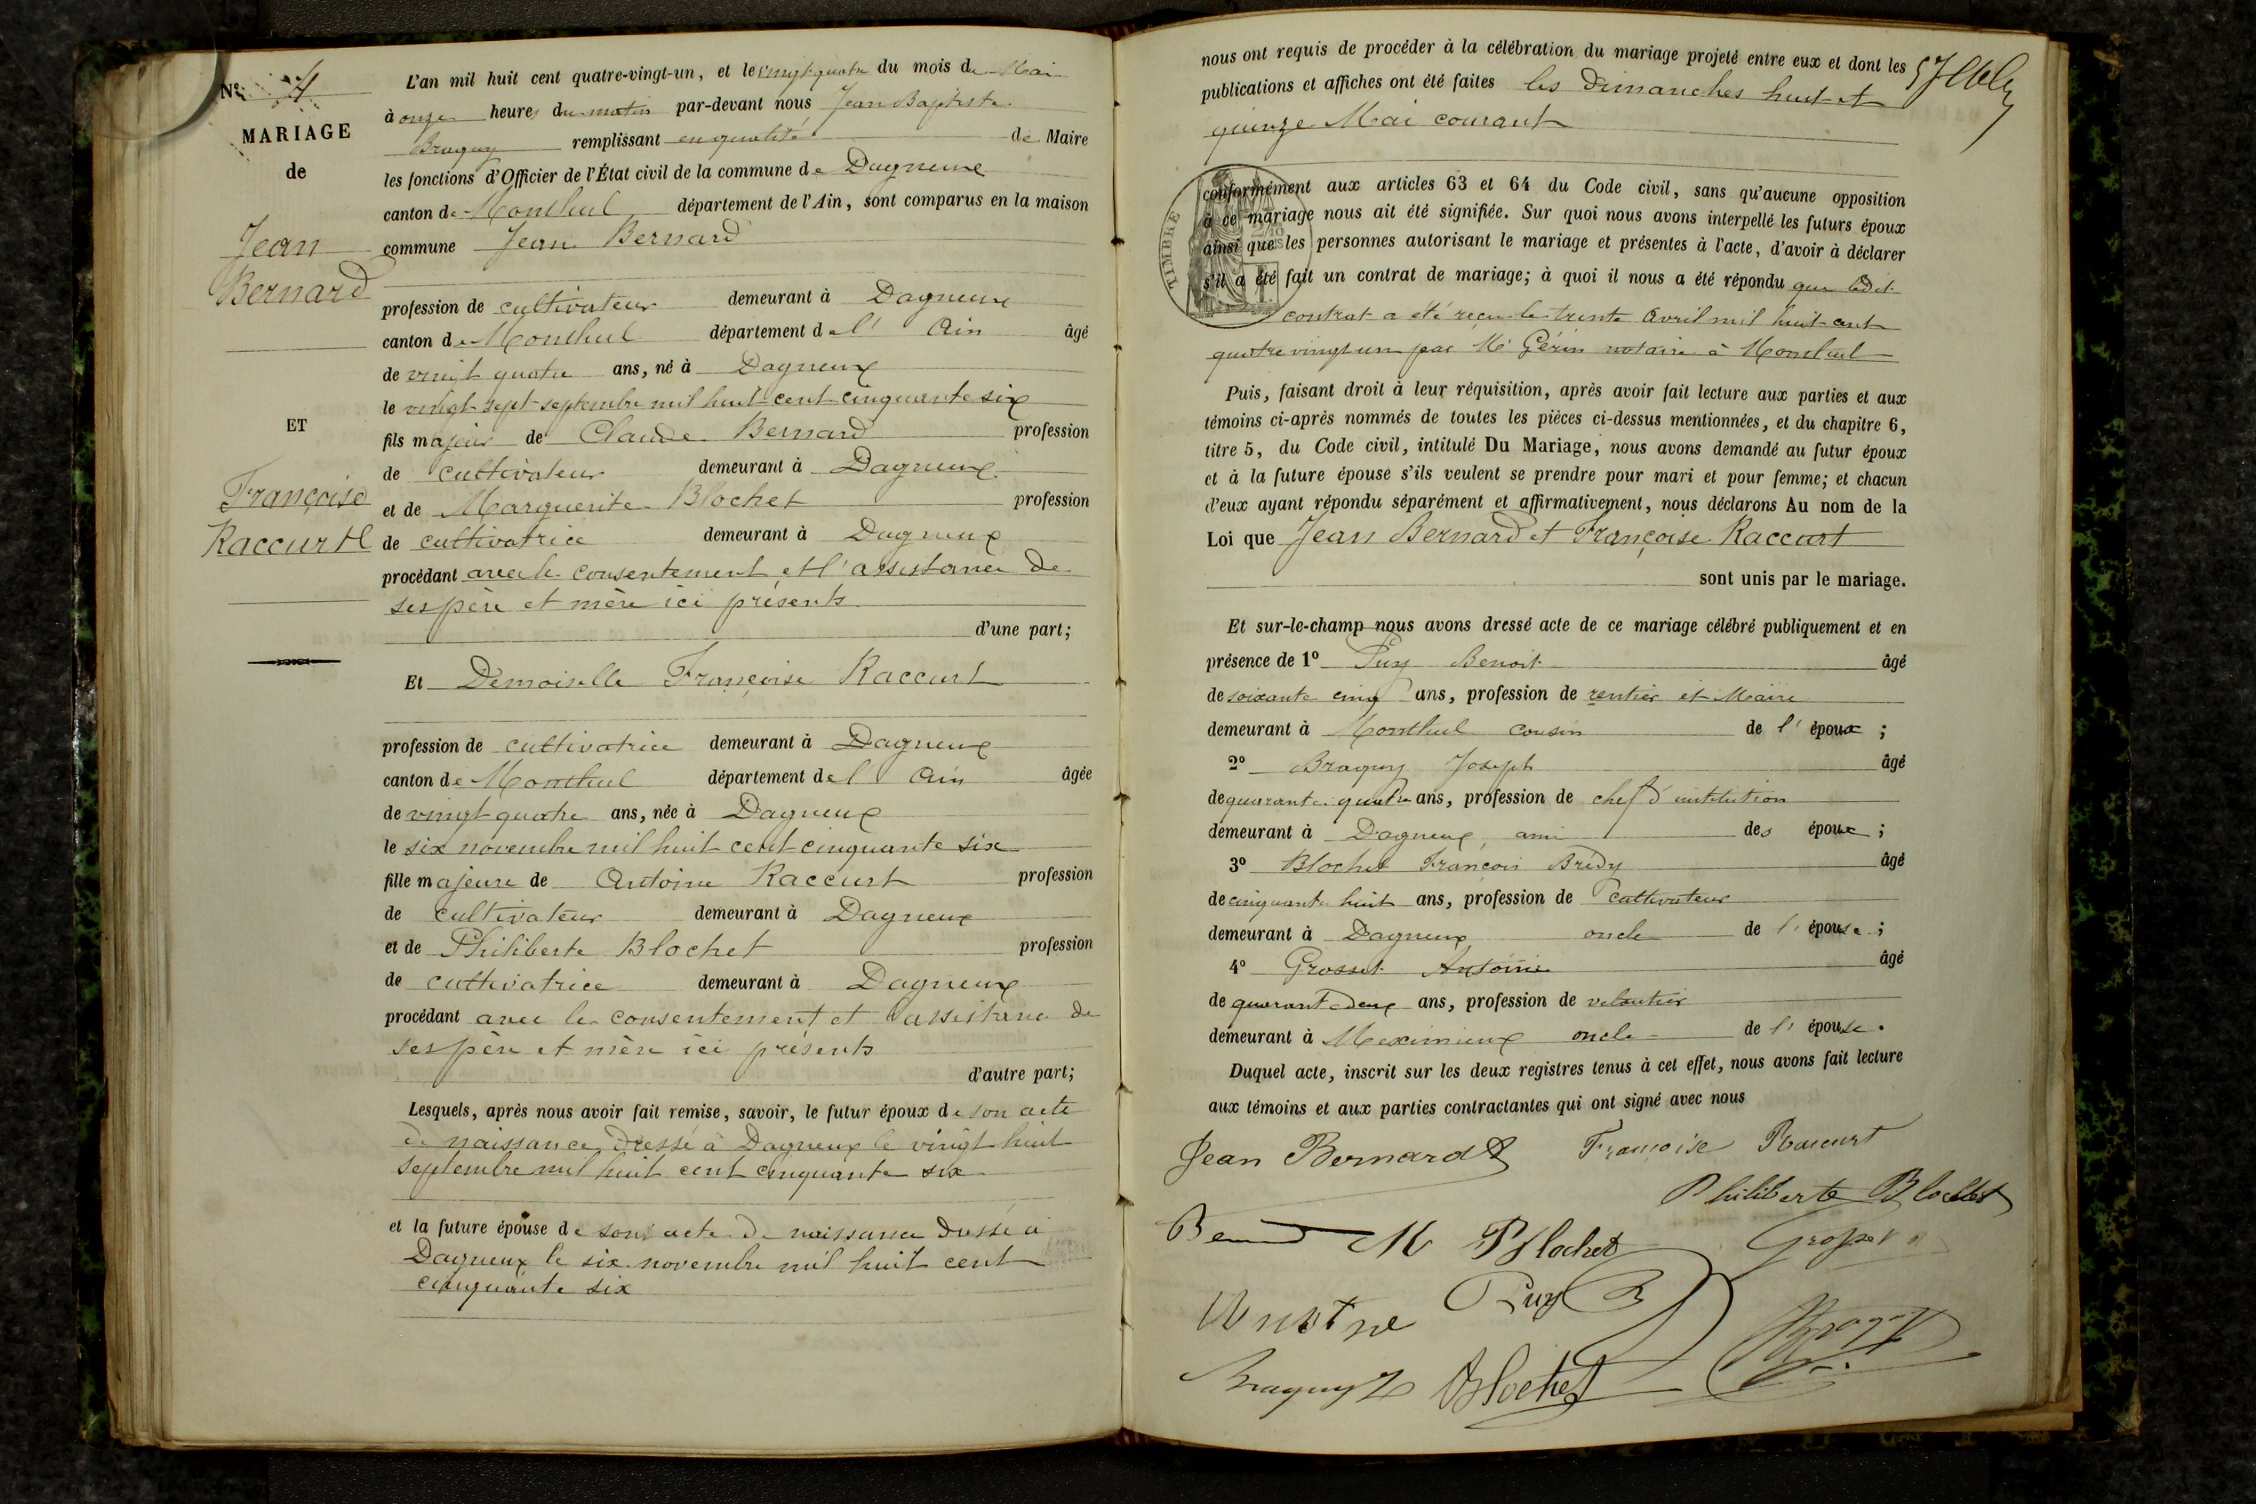 N° 4
MARIAGE
de
Jean
Bernard
ET
Françoise
Raccurt
L'an mil huit cent quatre-vingt-un, et le vingt quatre du mois de Mai
à onze heures du matin par-devant nous Jean Baptiste
Braguy remplissant en qualité de Maire
les fonctions d'Officier de l'État civil de la commune de Dagneux
canton de Montluel département de l'Ain, sont comparus en la maison
commune Jean Bernard
profession de cultivateur demeurant à Dagneux
canton de Montluel département de l' Ain âgé
de vingt quatre ans, né à Dagneux
le vingt-sept septembre mil huit cent cinquante six
fils majeur de Claude Bernard profession
de cultivateur demeurant à Dagneux
et de Marguerite Blochet profession
de cultivatrice demeurant à Dagneux
procédant avec le consentement et l'assistance de
ses père et mère ici présents
d'une part;
Et Demoiselle Françoise Raccurt
profession de cultivatrice demeurant à Dagneux
canton de Montluel département de l' Ain âgée
de vingt quatre ans, née à Dagneux
le six novembre mil huit cent cinquante six
fille majeure de Antoine Raccurt profession
de cultivateur demeurant à Dagneux
et de Philiberte Blochet profession
de cultivatrice demeurant à Dagneux
procédant avec le consentement et l'assistance de
ses père et mère ici présents
d'autre part;
Lesquels, après nous avoir fait remise, savoir, le futur époux de son acte
de naissance dressé à Dagneux le vingt huit
septembre mil huit cent cinquante six
et la future épouse de son acte de naissance dressé à
Dagneux le six novembre mil huit cent
cinquante six
nous ont requis de procéder à la célébration du mariage projeté entre eux et dont les
publications et affiches ont été faites les dimanches huit et
quinze Mai courant
TIMBRE
conformément aux articles 63 et 64 du Code civil, sans qu'aucune opposition
à ce mariage nous ait été signifiée. Sur quoi nous avons interpellé les futurs époux
ainsi que les personnes autorisant le mariage et présentes à l'acte, d'avoir à déclarer
s'il a été fait un contrat de mariage; à quoi il nous a été répondu que ledit
contrat a été reçu le trente avril mil huit cent
quatre vingt un par Me Gérin notaire à Montluel
Puis, faisant droit à leur réquisition, après avoir fait lecture aux parties et aux
témoins ci-après nommés de toutes les pièces ci-dessus mentionnées, et du chapitre 6,
titre 5, du Code civil, intitulé Du Mariage, nous avons demandé au futur époux
et à la future épouse s'ils veulent se prendre pour mari et pour femme; et chacun
d'eux ayant répondu séparément et affirmativement, nous déclarons Au nom de la
Loi que Jean Bernard et Françoise Raccurt
sont unis par le mariage.
Et sur-le-champ nous avons dressé acte de ce mariage célébré publiquement et en
présence de 1° Puy Benoit âgé
de soixante cinq ans, profession de rentier et Maire
demeurant à Montluel cousin de l' époux ;
2° Braguy Joseph âgé
de quarante quatre ans, profession de chef d'institution
demeurant à Dagneux ami des époux ;
3° Blochet François Brédy âgé
de cinquante huit ans, profession de cultivateur
demeurant à Dagneux oncle de l' épouse ;
4° Grosset Antoine âgé
de quarante deux ans, profession de
demeurant à Meximieux oncle de l' épouse.
Duquel acte, inscrit sur les deux registres tenus à cet effet, nous avons fait lecture
aux témoins et aux parties contractantes qui ont signé avec nous
Jean Bernard Françoise Raccurt
Philiberte Blochet
M Blochet Grosset
Puy B
Braguy Blochet